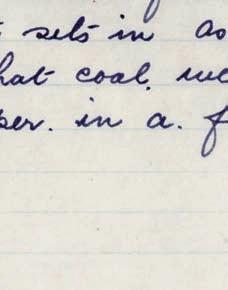 sets in as
hat coal.
per. in a. f